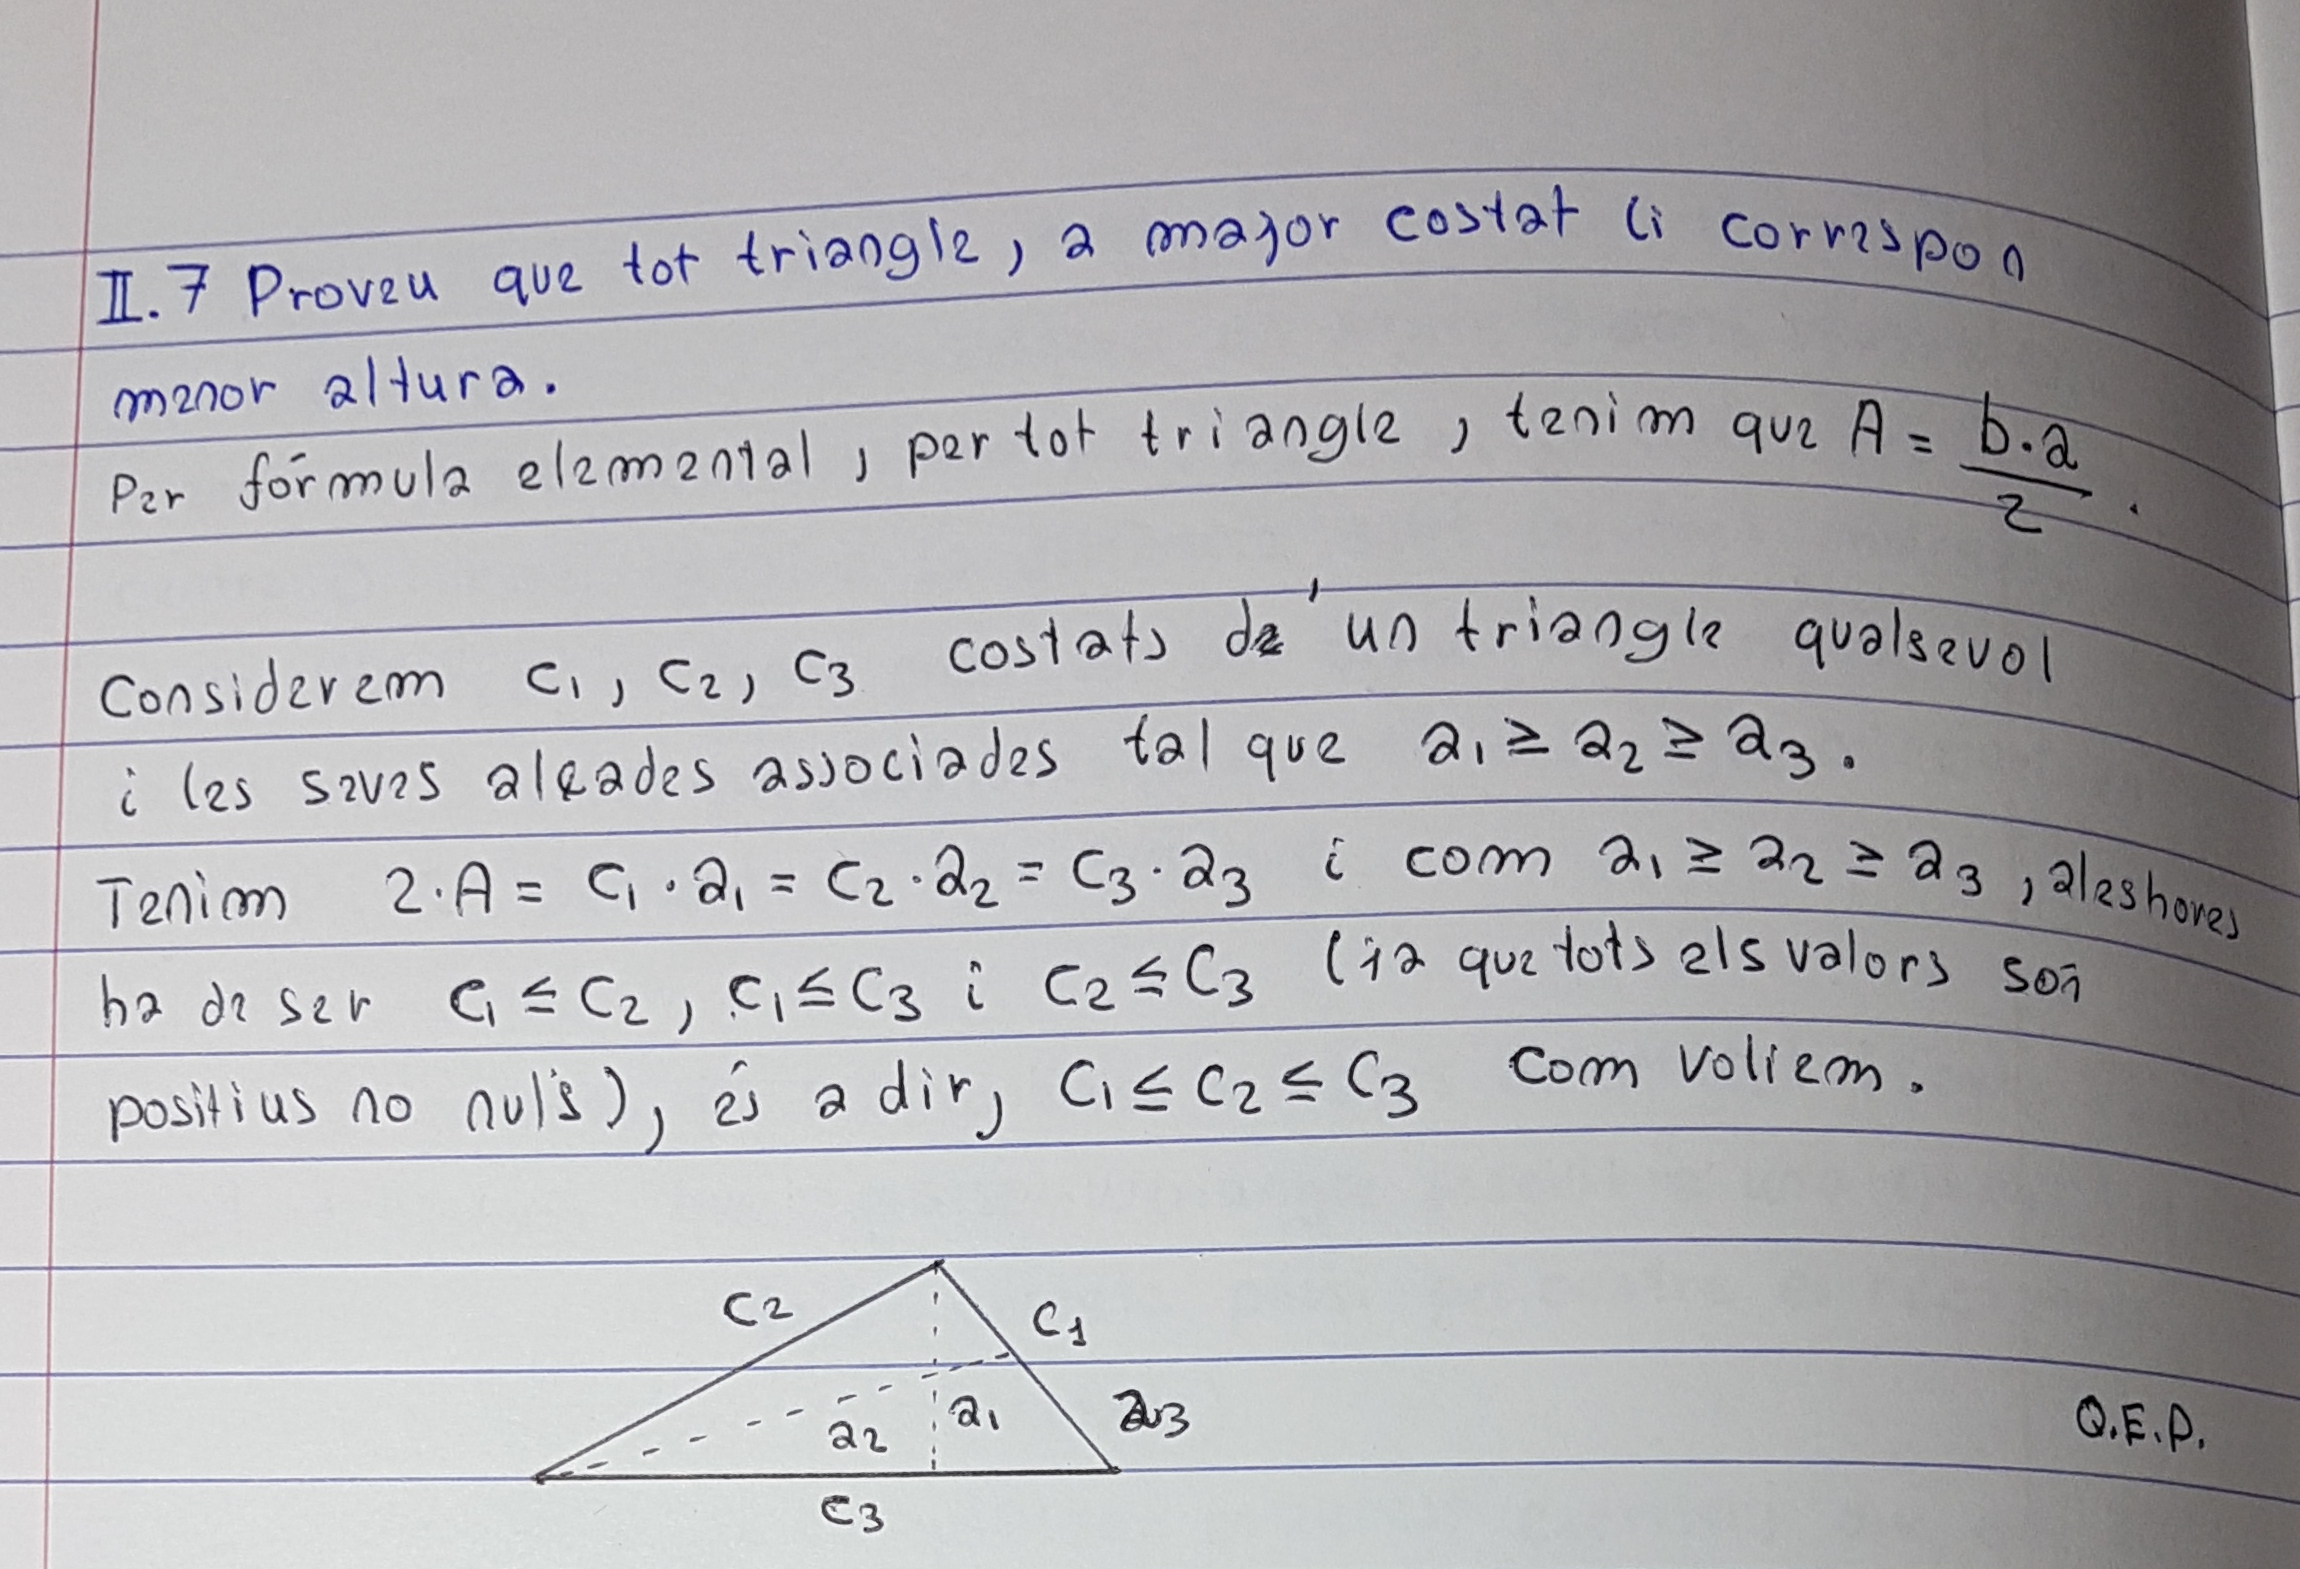 II.7 Proveu que tot triangle, a major costat li correspon
menor altura.
Per fórmula elemental, per tot triangle, tenim que A = b·a/2.
Considerem c₁, c₂, c₃ costats d'un triangle qualsevol
i les seves alçades associades tal que a₁ ≥ a₂ ≥ a₃.
Tenim 2·A = c₁·a₁ = c₂·a₂ = c₃·a₃ i com a₁ ≥ a₂ ≥ a₃, aleshores
ha de ser c₁ ≤ c₂, c₁ ≤ c₃ i c₂ ≤ c₃ (ja que tots els valors són
positius no nuls), és a dir, c₁ ≤ c₂ ≤ c₃ com voliem.
c₂ c₁
a₂ a₁ a₃
c₃
Q.E.D.